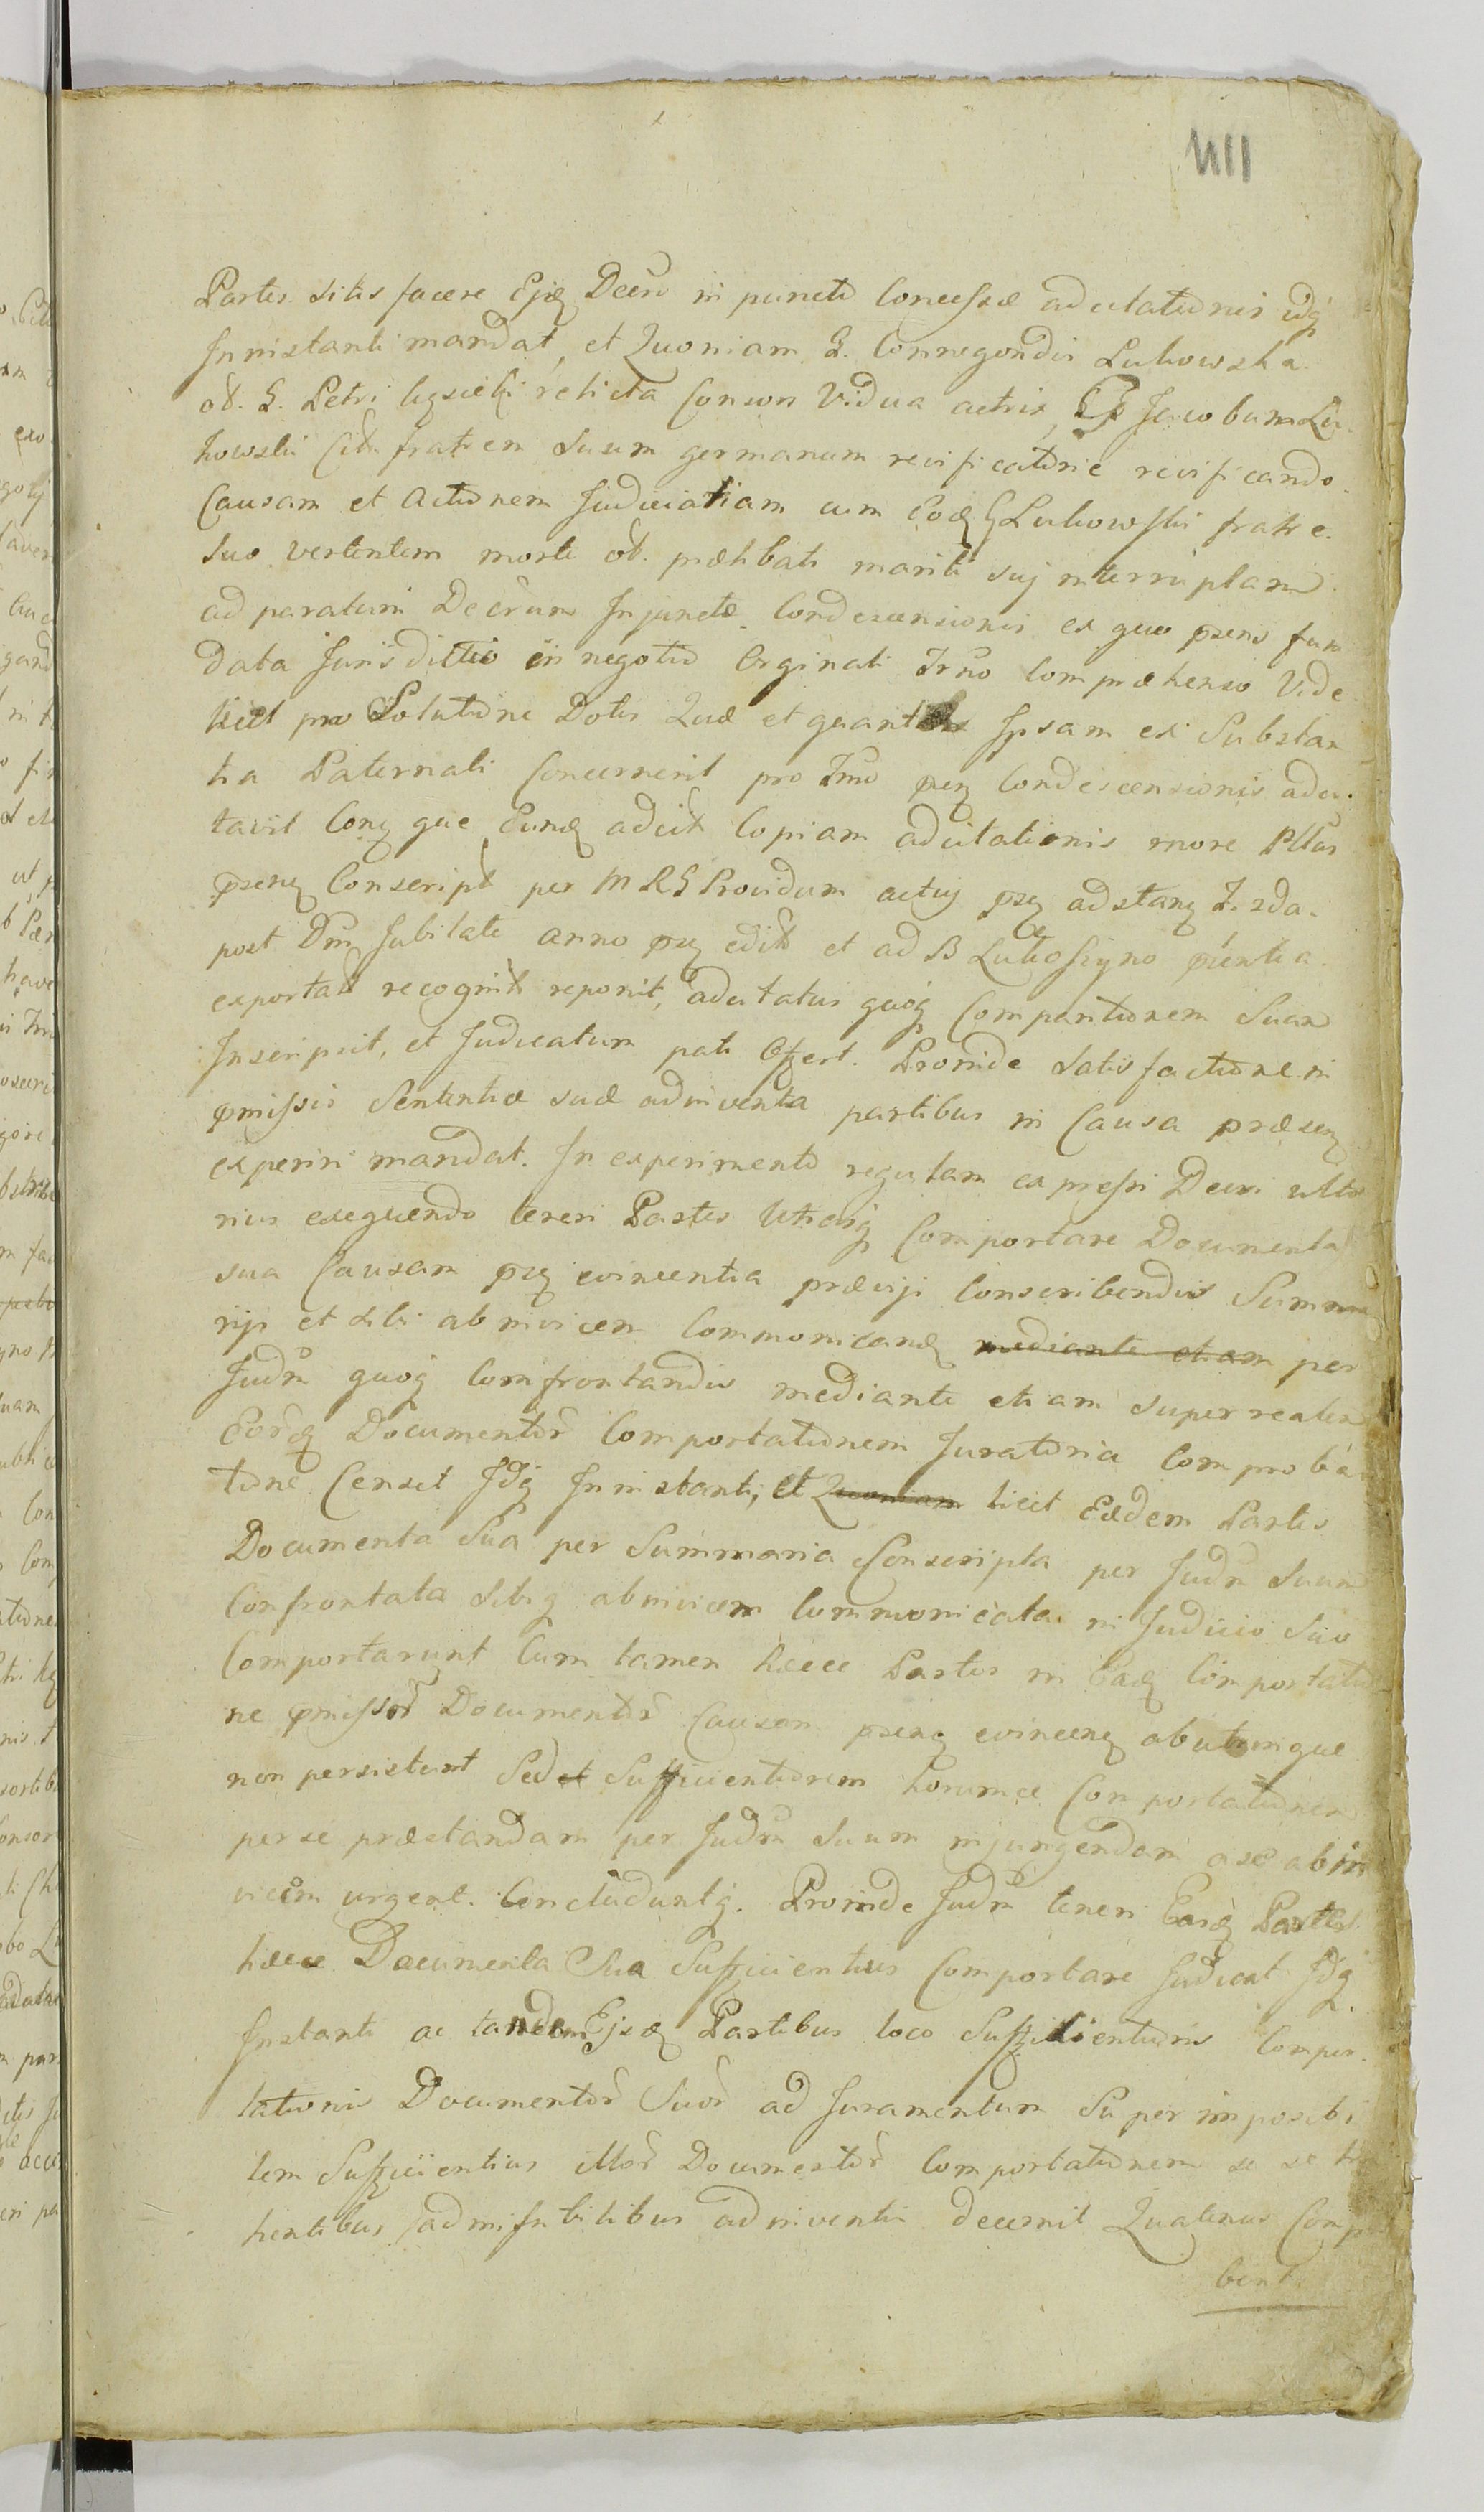 411
Partes sitis facere Ejq Decro in puncto Concessæ adcitationis idq
Inninstanti mandat, et Quoniam G. Connegondis Lukowska
ol. G. Petri relicta Consors Vidua actrix, Jacobum Lu
kowski Citt fratrem Suum germanum revificatorie revificando
Causam et Actionem Judiciariam cum Eoq G Lukowski fratre
Suo vertentem morte ol. præhbati mariti suj interruptam
ad paratum Decrum Injunctæ Condescensionis ex quo psens fun
data Jurisdictio in negotio Orginali Trno Compræhenso Vide
licet pro Solutione Dotis Quæ et quanta Ipsam ex Substan
tia Paternali Concernerit pro Trno psenq Condescensionis adci
tavit Conq que Eunq adcitt Copiam adcitationis more Pltus
psenq Conscript per M R G Providum actuj psq adstanq F. 2da
post Dnij Jubilate anno psq edit et ad B Lutosiyno psentia
exportatt recognitt reponit, adcitatus quoq Comparitionem Suam
Inscripsit, et Judicatum pati Offert. Proinde Satisfactione in
pmissis Sententiæ suæ adinventa partibus in Causa præsenq
experiri mandat. In experimento regulam expressi Decri ulte
rius exequendo teneri Partes Utrasq Comportare Documenta
sua Causam psq evincentia præviji Conscribendis Summa
riji et sibi abinvicem Commonicanq mediante etiam per
Judm quoq Comfrontandis mediante etiam super realem
Eorq Documentor Comportationem Juratoria Comproba
tione Censet Idq Inninstanti, et Quoniam licet Eædem Partes
Documenta Sua per Summaria Conscripta per Judm Suum
Confrontata Sibiq abinvicem Commonicata in Judicio Suo
Comportarunt Cum tamen hæce Partes in Eaq Comportatio
ne pmissor Documentor Causam psenq evincenq abutrinque
non persistunt Sed et Sufficientiorem horumce Comportationem
per se præstandam per Judm Suum injungendam a se abin
vicem urgent. Concluduntq. Proinde Judm teneri Easq Partes
hæce Documenta Sua Sufficientius Comportare Judicat Idq
Instanti ac tandem Ejsq Partibus loco Sufficientioris Compor
tationis Documentor Suor ad Juramentum Super impossibi
lem Sufficientius illor Documentor Comportationem se se
hentibus admissibilibus adinventis decernit Quatenus Comp
bent